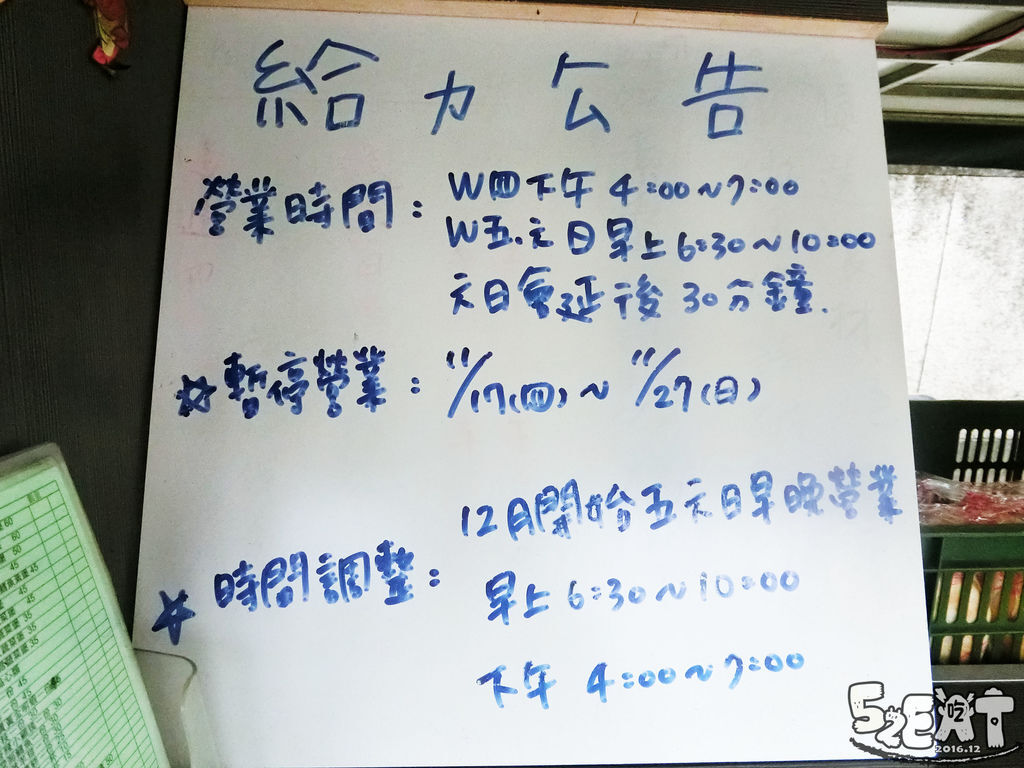 給力公告
營業時間：W四下午 4:00~7:00
W五.六日早上 6:30~10:00
六日會延後 30分鐘.
☆暫停營業：11/17(四)~11/27(日)
12月開始五六日早晚營業
☆時間調整：
早上 6:30~10:00
下午 4:00~7:00
52EAT
吃
2016.12